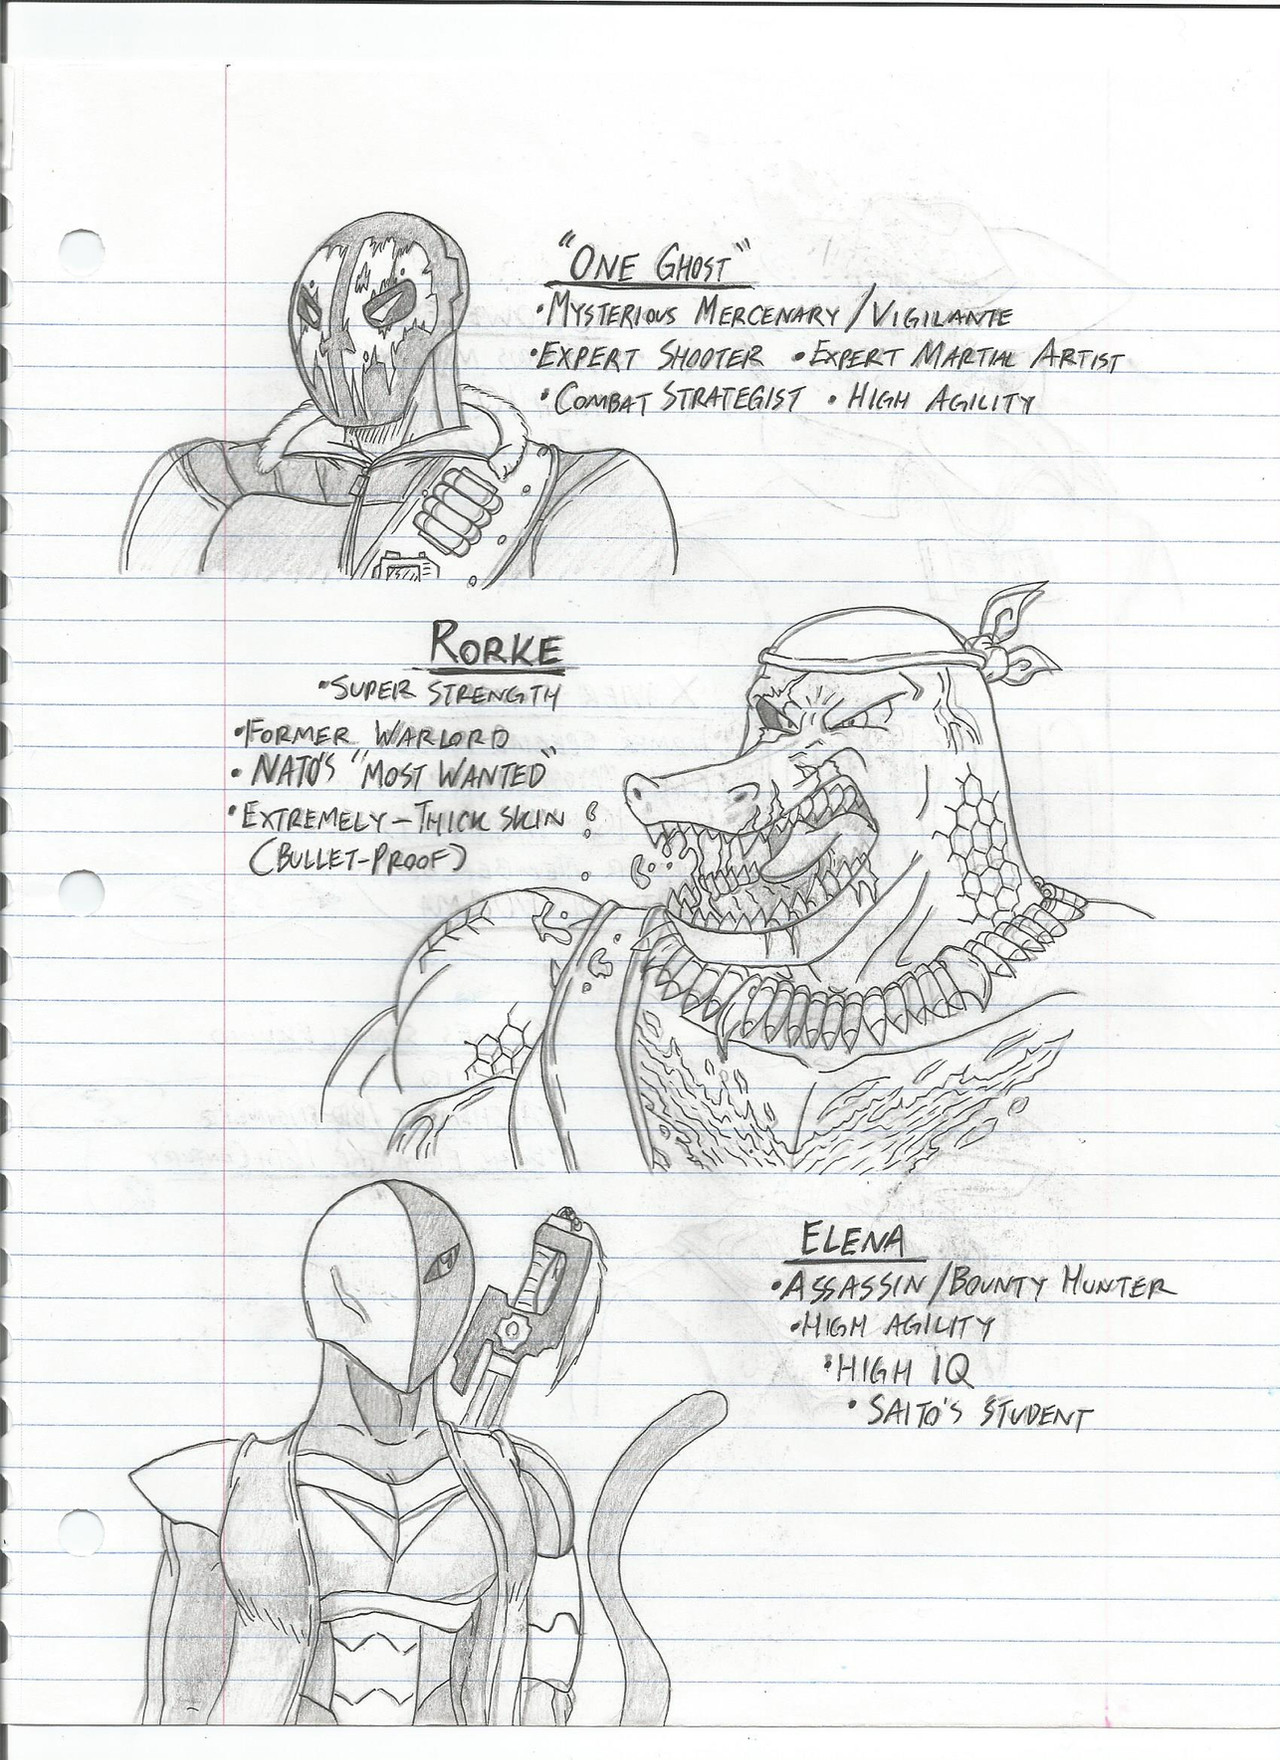 "One Ghost"
•Mysterious Mercenary/Vigilante
•Expert Shooter •Expert Martial Artist
•Combat Strategist •High Agility
Rorke
•Super Strength
•Former Warlord
•NATO's "Most Wanted"
•Extremely-Thick Skin
(Bullet-Proof)
Elena
•Assassin/Bounty Hunter
•High Agility
•High IQ
•Saito's Student